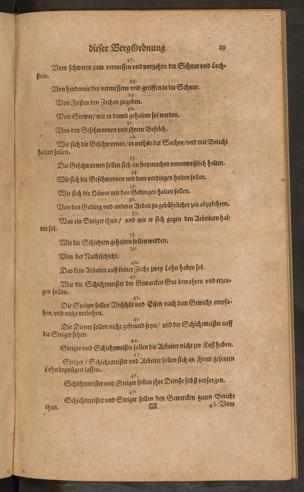 dieser BergOrdnung. 89
27.
Vom schweren zum vermessen vnd vorgehen der Schnur vnd Loch-
stein.
28.
Von hindernis des vermessens vnd greiffen in die Schnur.
29.
Von Fristen den Zechen zugeben.
30.
Von Stewer / wie es damit gehalten sol werden.
31.
Von den Geschwornen vnd jhrem Befehlch.
32.
Wie sich die Geschwornen / in verhör der Sachen / vnd mit Bericht
halten sollen.
33.
Die Geschwornen sollen sich im freymachen vnverweißlich halten.
34.
Wie sich die Geschwornen mit dem verdingen halten sollen.
35.
Wie sich die Häwer mit den Gedingen halten sollen.
36.
Von den Geding vnd anderer Arbeit zu gebührlicher zeit abzekehren.
37.
Was ein Steiger thun / vnd wie er sich gegen den Arbeitern hal-
ten sol.
38.
Wie die Schichten gehalten sollen werden.
39.
Von der Nachtschicht.
40.
Das kein Arbeiter auff keiner Zeche zwey Lohn haben sol.
41.
Wie die Schichtmeister der Gewercken Gut bewahren vnd erzeu-
gen sollen.
42.
Die Steiger sollen Vnschlit vnd Eisen nach dem Gewicht empfa-
hen / vnd nicht verleihen.
43.
Die Diener sollen nicht gefreund seyn / vnd der Schichtmeister auff
die Steiger sehen.
44.
Steiger vnd Schichtmeister sollen die Arbeiter nicht zur Kost haben.
45.
Steiger / Schichtmeister vnd Arbeiter sollen sich an jhrem gesetzten
Lohn begnügen lassen.
46.
Schichtmeister vnd Steiger sollen jhre Dienste selbst versorgen.
47.
Schichtmeister vnd Steiger sollen den Gewercken guten Bericht
thun. M 48. Vom